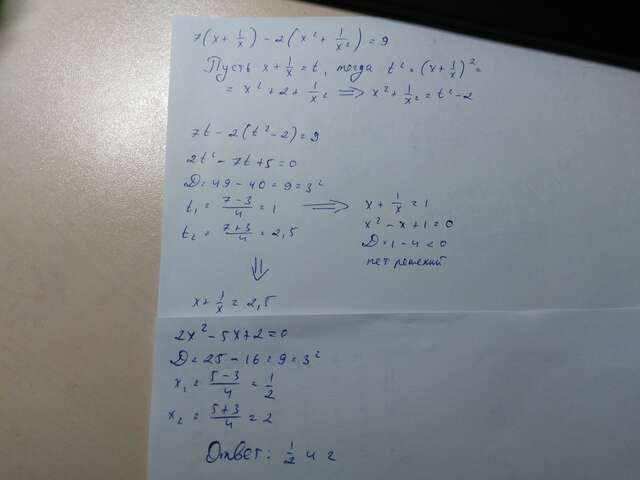 7(x + 1/x) - 2(x² + 1/x²) = 9
Пусть x + 1/x = t, тогда t² = (x + 1/x)² =
= x² + 2 + 1/x² ⟹ x² + 1/x² = t² - 2
7t - 2(t² - 2) = 9
2t² - 7t + 5 = 0
D = 49 - 40 = 9 = 3²
t₁ = (7-3)/4 = 1 ⟹ x + 1/x = 1
t₂ = (7+3)/4 = 2,5
x² - x + 1 = 0
D = 1 - 4 < 0
нет решений
⇓
x + 1/x = 2,5
2x² - 5x + 2 = 0
D = 25 - 16 = 9 = 3²
x₁ = (5-3)/4 = 1/2
x₂ = (5+3)/4 = 2
Ответ: 1/2 и 2